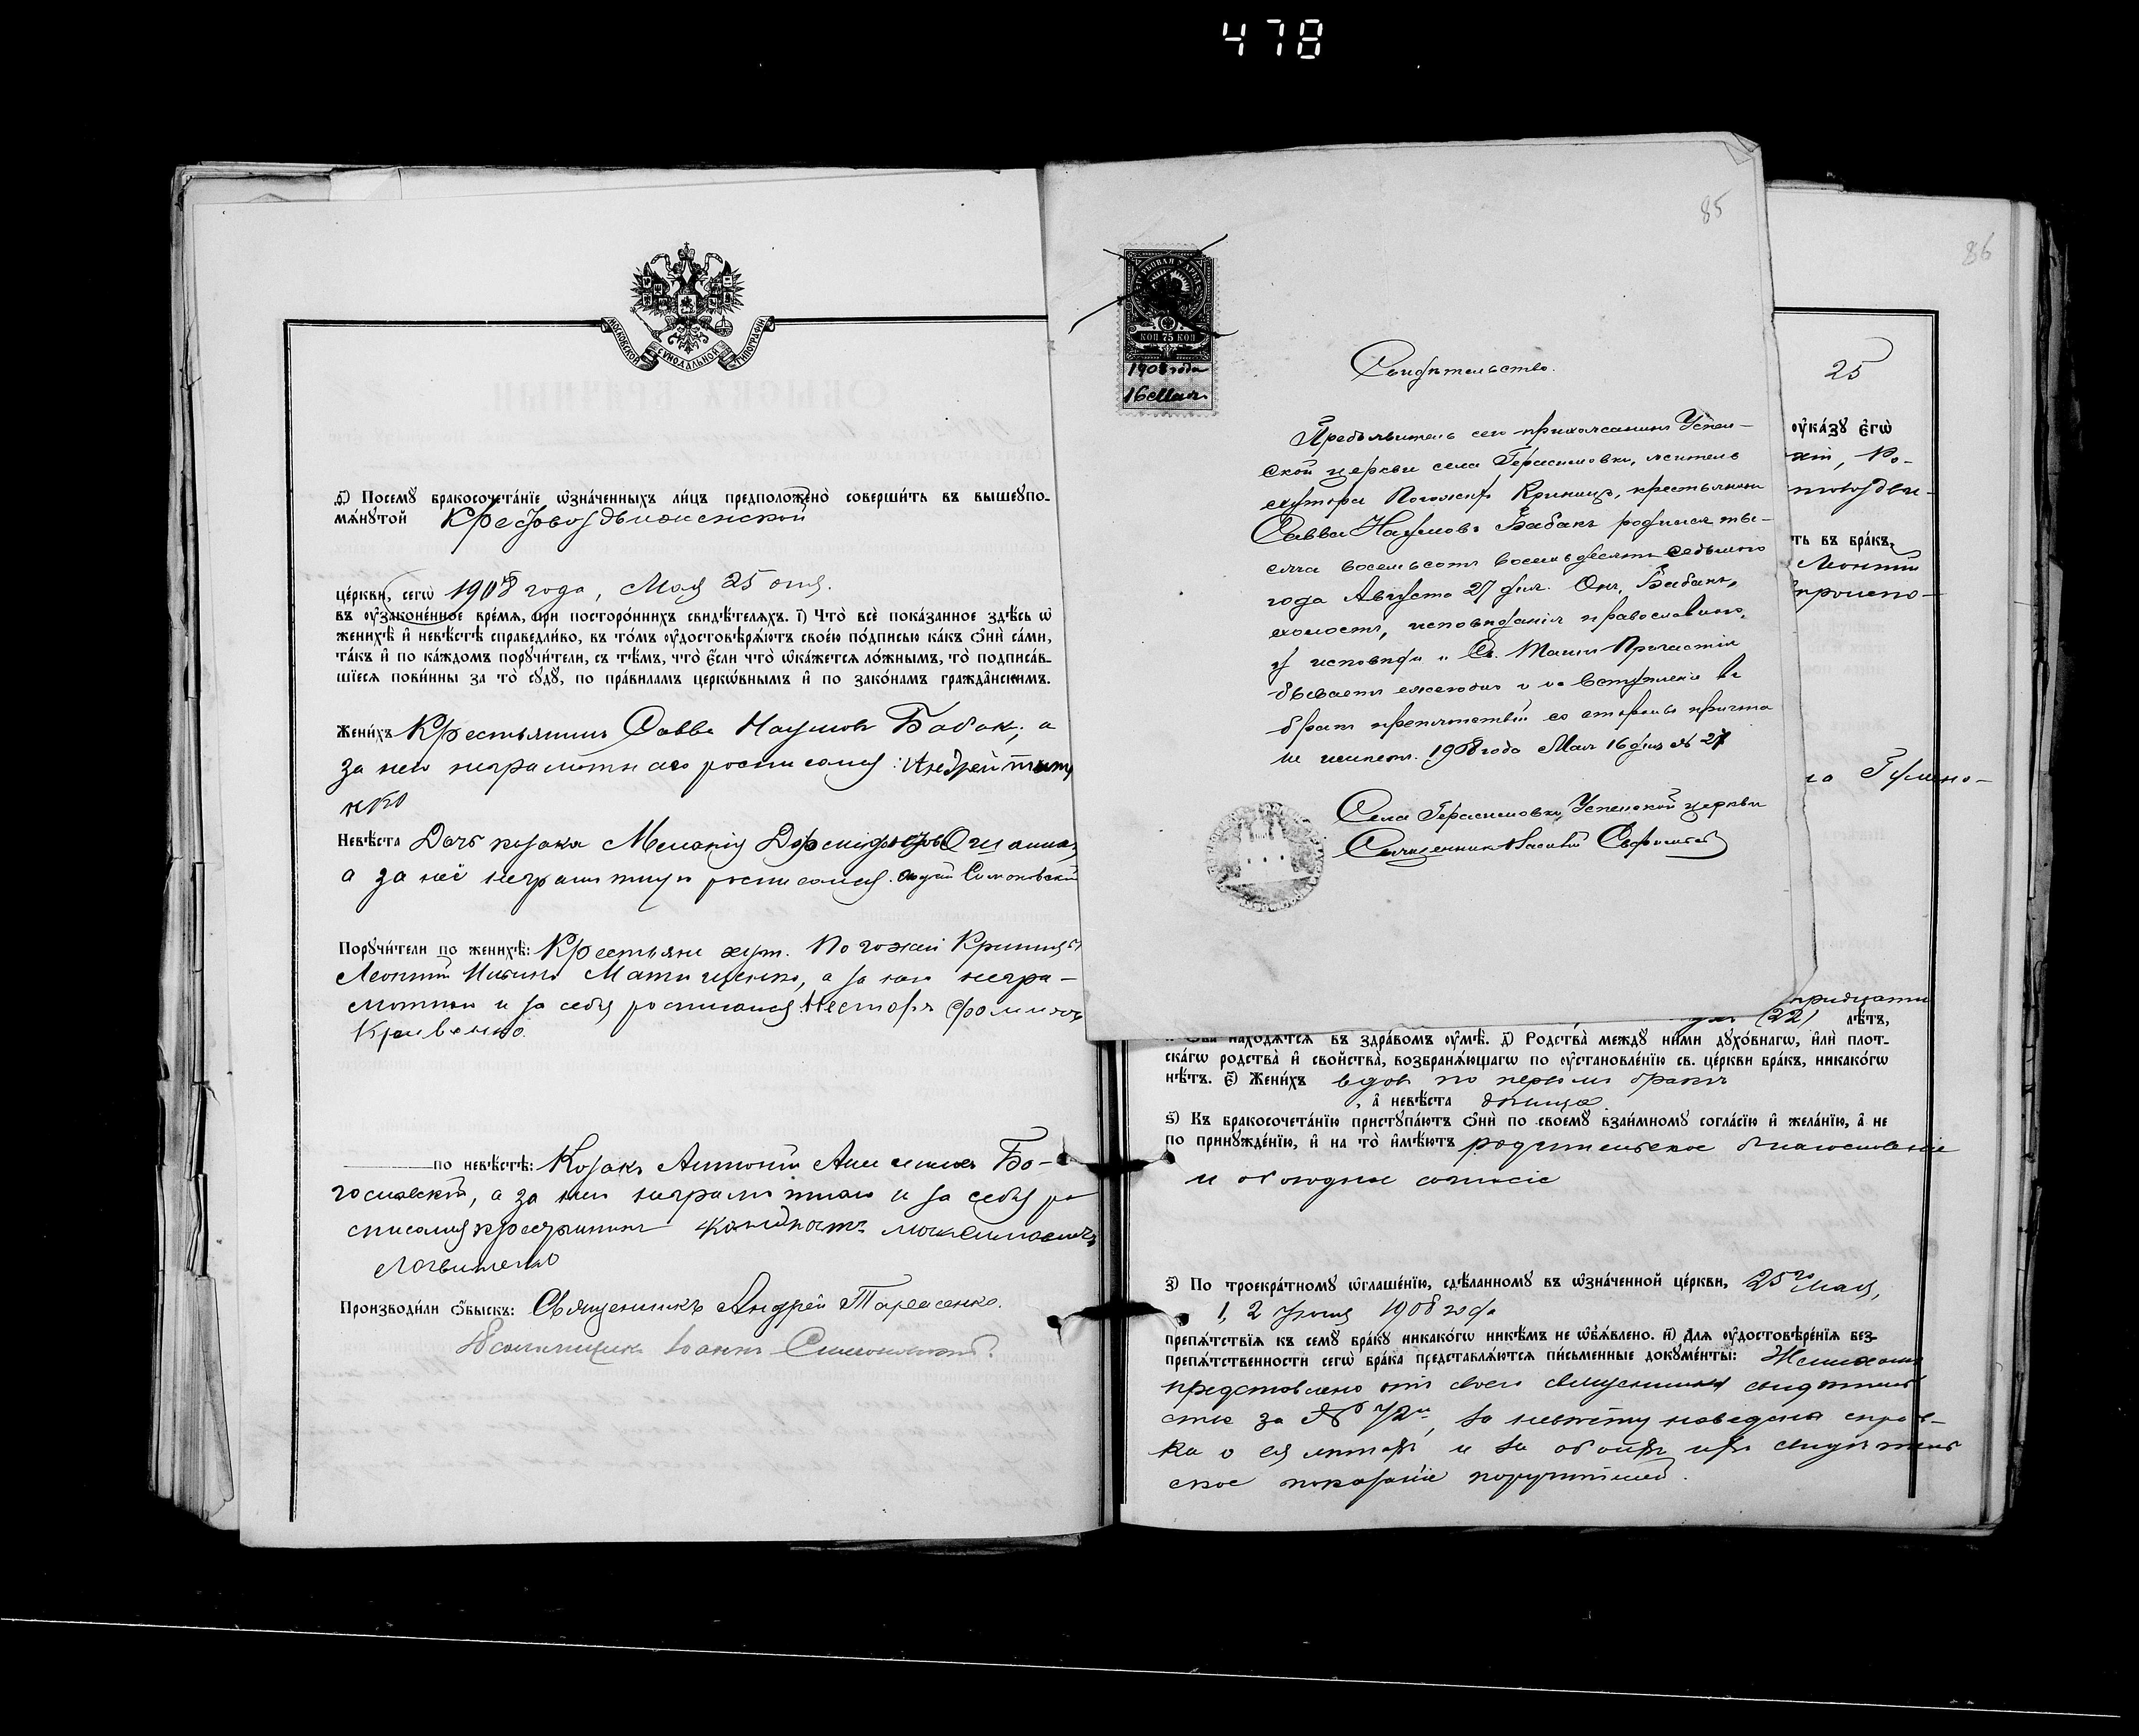 478
МОСКОВСКОЙ СѴНОДАЛЬНОЙ ТИПОГРАФІИ
д҃) Посемꙋ бракосочета́нїе ѡзна́ченныхъ ли́цъ предположено̀ соверши́ть въ вышеупо-
мѧ́нꙋтой Крестовоздвиженской
це́ркви, сегѡ̀ 1908 года, Мая 25 дня.
въ оузаконе́нное вре́мѧ, при посторо́ннихъ свидѣ́телѧхъ. і҃) Что̀ всѐ пока́занное здѣ́сь ѡ
женихѣ̀ и҆ невѣ́стѣ справедли́во, въ то́мъ оудостовѣрѧ́ютъ свое́ю по́дписью ка́къ ѻ҆нѝ са́ми,
та́къ и҆ по ка́ждомъ порꙋчи́тели, съ тѣ́мъ, что̀ є҆́сли что̀ ѡка́жетсѧ ло́жнымъ, то̀ подписа́в-
шїесѧ пови́нны за то̀ сꙋдꙋ̀, по пра́виламъ церкѡ́внымъ и҆ по зако́намъ гражда́нскимъ.
Жени́хъ Крестьянинъ Савва Наумовъ Бабак; а
за него неграмотнаго росписался: Андрей
Невѣ́ста Дочь козака Меланія
а за неё неграмотную росписался: Симоновскій
Порꙋчи́тели по женихѣ̀: Крестьяне хут. Погожей Криницы
Леонтій Матющенко, а за него негра-
мотнаго и за себя росписался: Несторъ Фоминъ
Кривенко.
по невѣ́стѣ: Козакъ Антоній Бо-
гославскій, а за него неграмотнаго и за себя ро
списался крестьянинъ
Логвиненко
Производи́ли ѻ҆́быскъ: Священникъ Андрей Тарасенко.
Псаломщикъ Іоаннъ Симоновскій.
85
ГЕРБОВАЯ МАРКА
КОП 75 КОП
1908 года
16 Мая
Свидѣтельство.
Предъявитель сего прихожанинъ Успен-
ской церкви села Герасимовки, житель
хутора Погожей Криницы, крестьянинъ
Савва Наумовъ Бабакъ родился ты-
сяча восемьсотъ восемьдесятъ седьмого
года Августа 27 дня. Онъ, Бабакъ,
холостъ, исповѣданія православнаго,
у исповѣди и Св. Таинъ Причастія
бываетъ ежегодно и на вступленіе въ
бракъ препятствій со стороны причта
не имѣетъ. 1908 года Мая 16 дня № 27
Села Герасимовки, Успенской церкви
Священникъ Василій
86
25
оука́зꙋ є҆гѡ̀
ть въ бра́къ,
Леонтій
тридцати
(22) лѣ́тъ,
и ѻба нахо́дѧтсѧ въ здра́вомъ оумѣ̀. д҃) Родства̀ междꙋ̀ ни́ми дꙋхо́внагѡ, и҆лѝ плот-
ска́гѡ родства̀ и҆ свойства̀, возбранѧ́ющагѡ по оустановле́нїю св. це́ркви бра́къ, никако́гѡ
нѣ́тъ. є҃) Жени́хъ вдовъ по первомъ бракѣ
, а҆ невѣ́ста дѣвица.
ѕ҃) Къ бракосочета́нїю пристꙋпа́ютъ ѻ҆нѝ по своемꙋ̀ взаи́мномꙋ согла́сїю и҆ жела́нїю, а҆ не
по принꙋжде́нїю, и҆ на то̀ и҆мѣ́ютъ родительское благословеніе
и обоюдное согласіе
з҃) По троекра́тномꙋ ѡглаше́нїю, сдѣ́ланномꙋ въ ѡзна́ченной це́ркви, 25го Мая,
1, 2 Іюня 1908 года
препѧ́тствїѧ къ семꙋ̀ бра́кꙋ никако́гѡ никѣ́мъ не ѡб̾ѧ́влено. и҃) Длѧ оудостовѣре́нїѧ без-
препѧ́тственности сегѡ̀ бра́ка представлѧ́ютсѧ пи́сьменные докꙋме́нты: Женихомъ
представлено отъ своего священника свидѣтель
ство за № 72м, за невѣсту наведена справ-
ка о ея лѣтахъ и за обоихъ ихъ свидѣтель
ское показаніе поручителей.